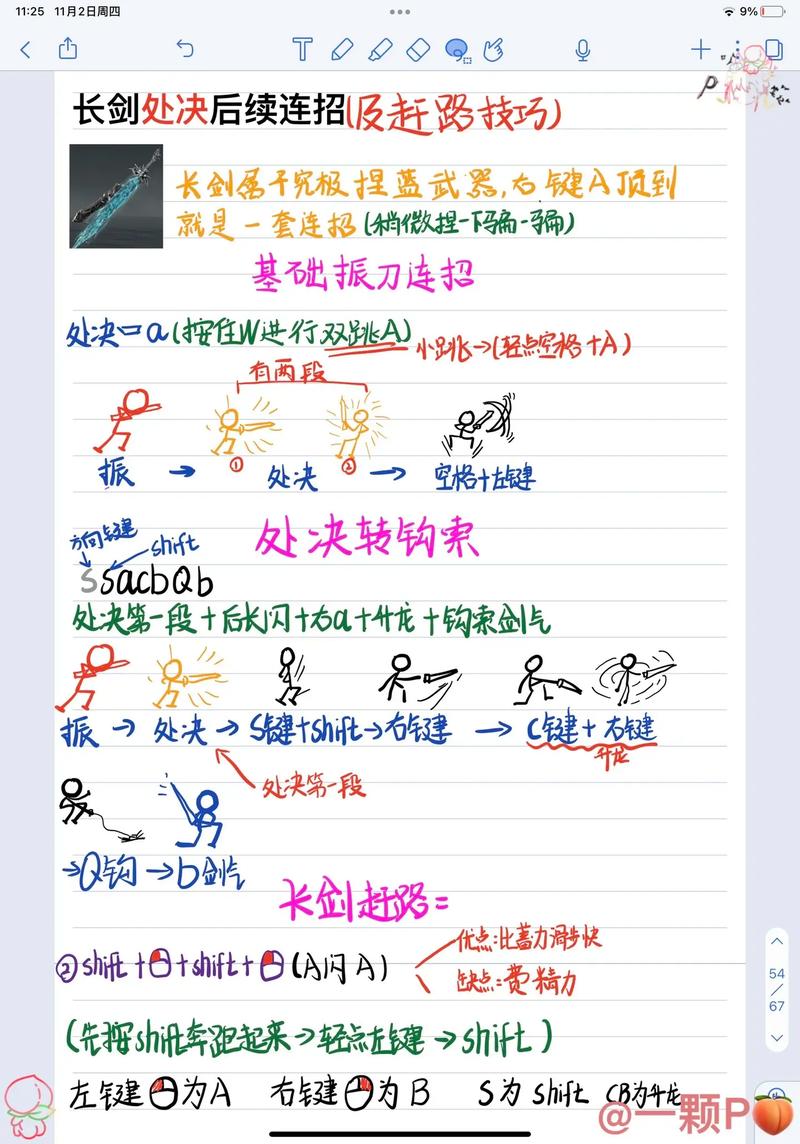 11:25 11月2日周四
9%
长剑处决后续连招(及赶路技巧)
长剑属于究极捏蓝武器,右键A顶到
就是一套连招(稍微捏一下骗一骗)
基础振刀连招
处决=a(按住W进行双跳A) 小跳→(轻点空格+A)
有两段
① ②
振 → 处决 → 空格+左键
处决转钩索
方向键 shift
SsacbQb
处决第一段+后长闪+右a+升龙+钩索剑气
振 → 处决 → S键+shift→右键 → C键+右键
升龙
处决第一段
→Q钩 →b剑气
长剑赶路=
优点:比蓄力滑步快
②shift+ +shift+ (A闪A)
缺点:费精力
54
67
(先按shift奔跑起来→轻点左键→shift)
左键 为A 右键 为B S为shift CB为升龙
@一颗P